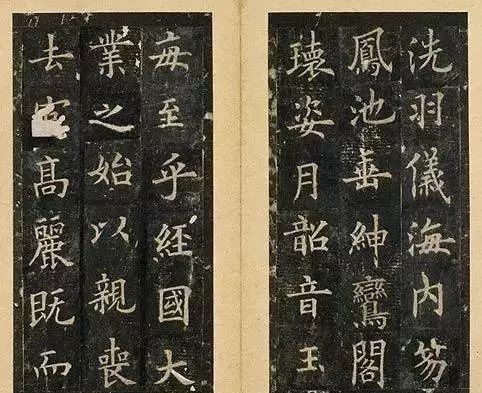 洗羽儀海内笏
鳳池垂紳鸞閣
瓌姿月韶音王
每至乎經國大
業之始以親喪
去高麗既而